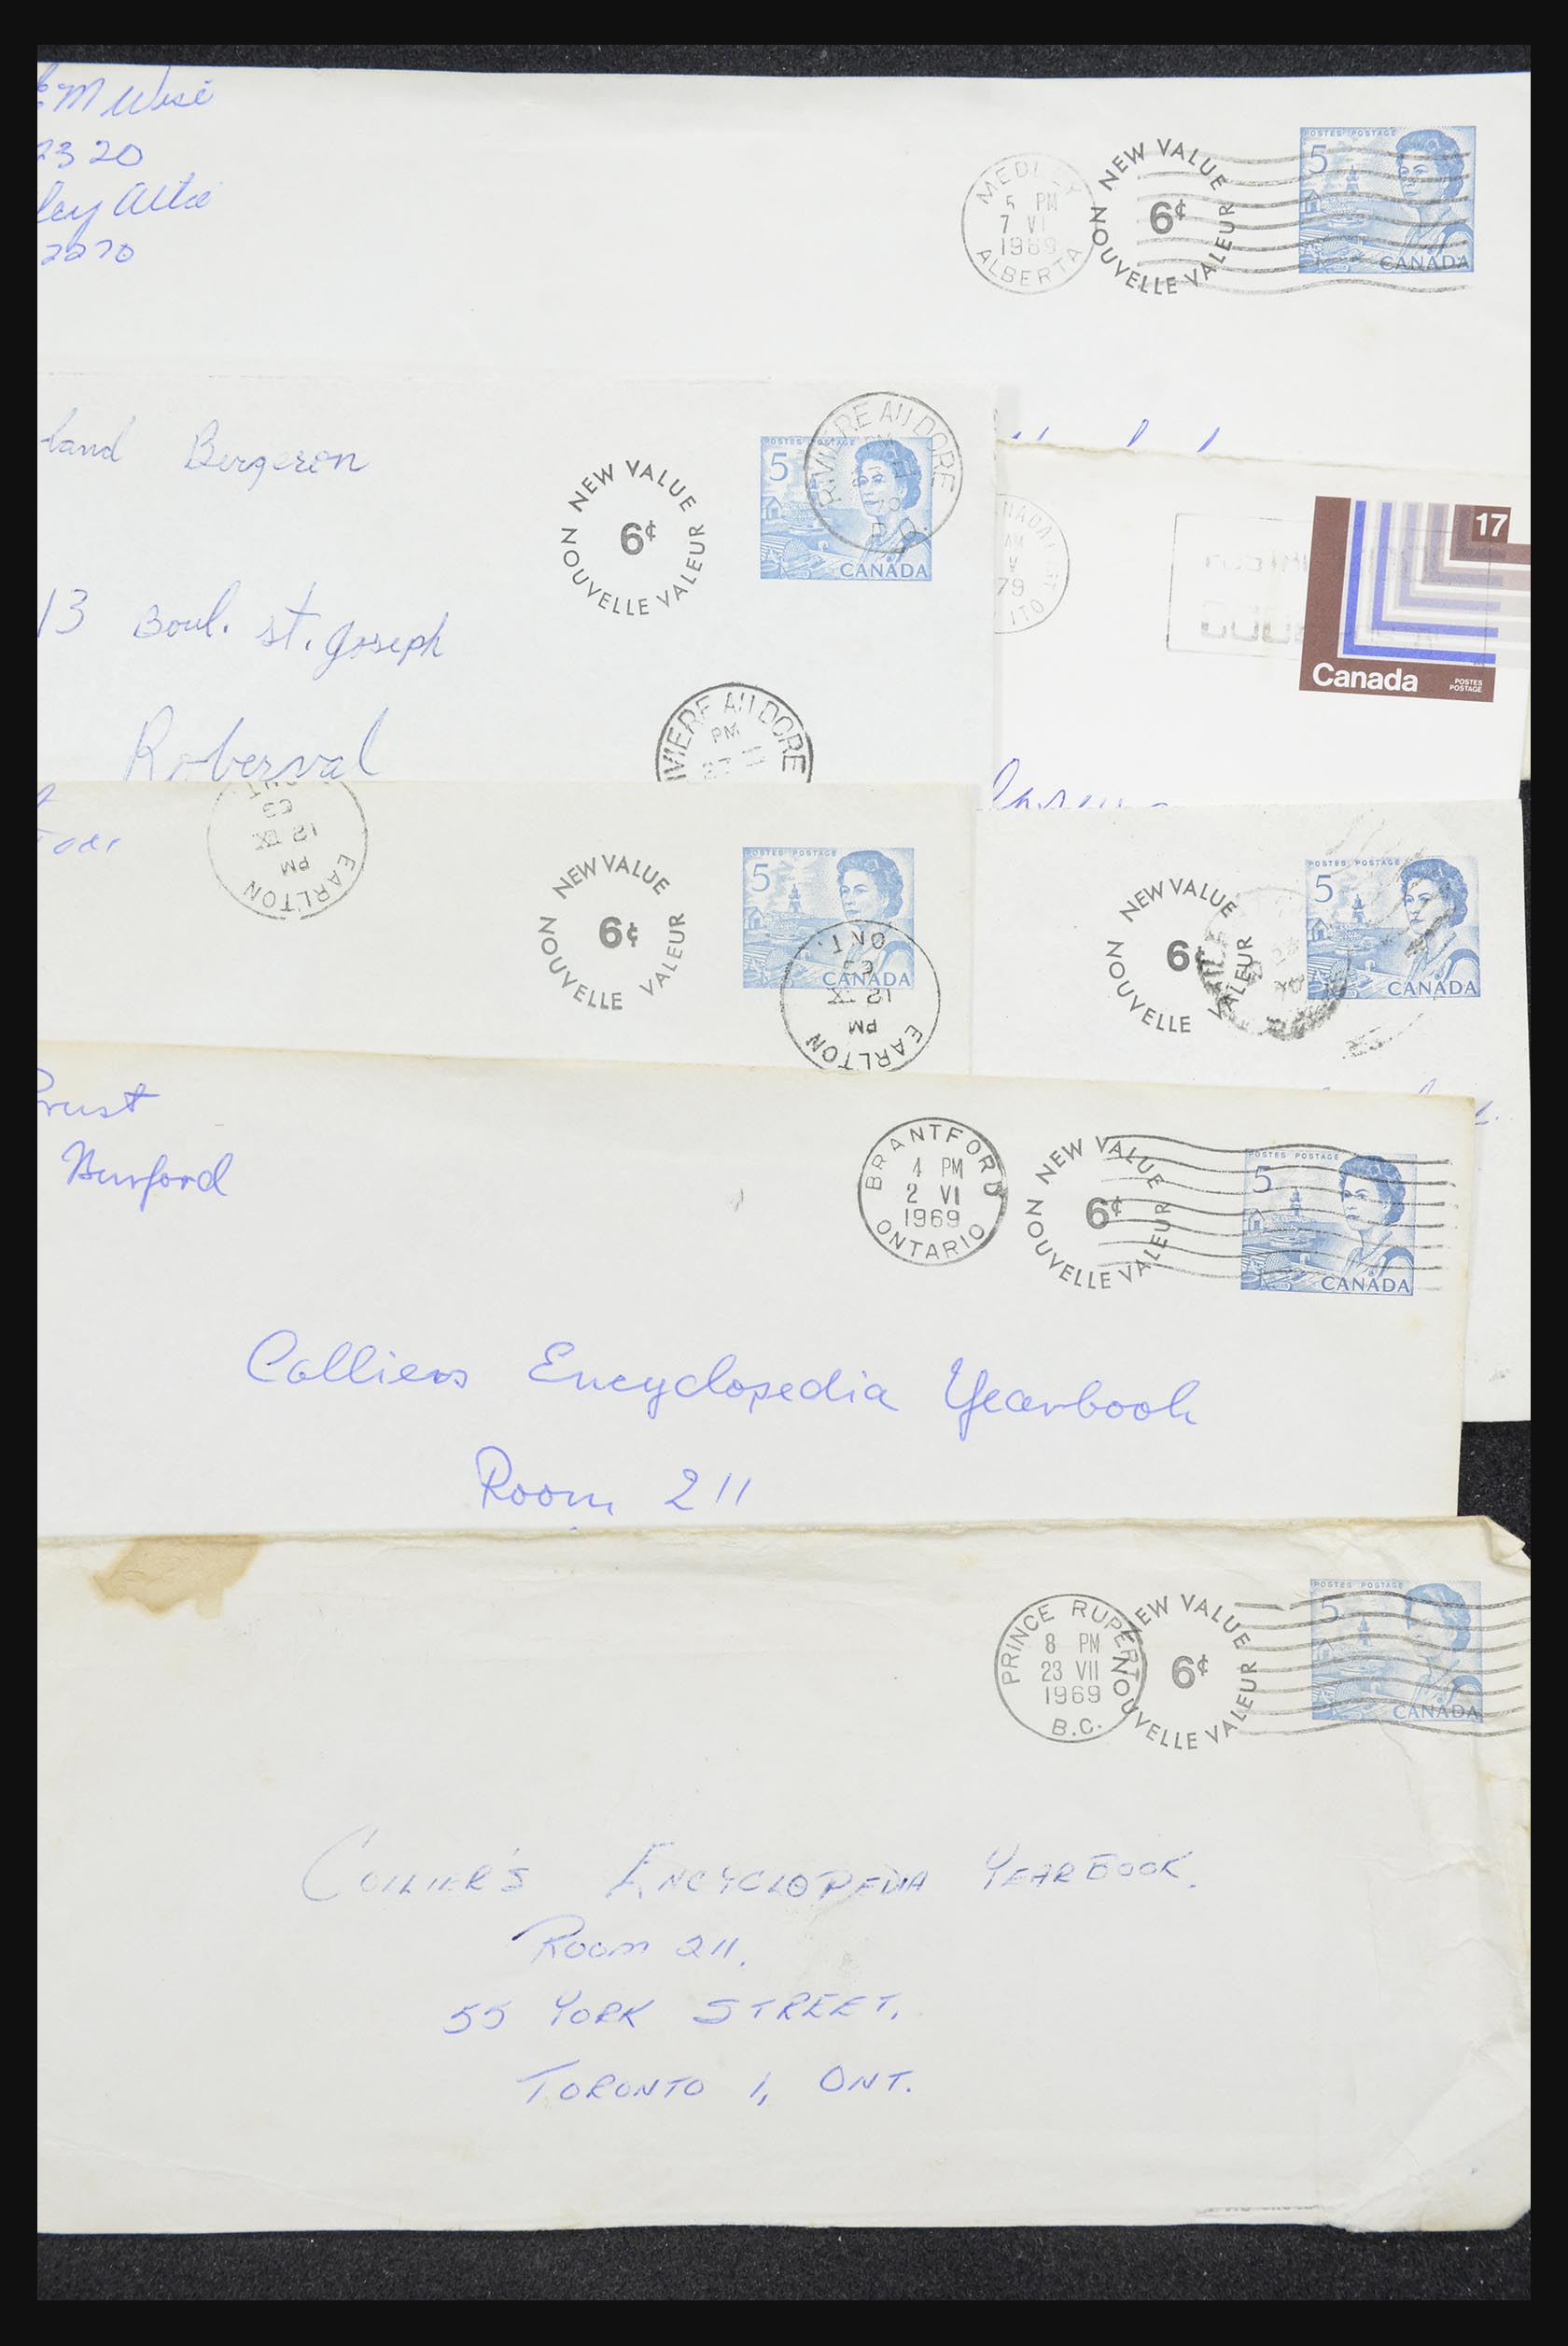 M Wise
2320
ley Alta
2270
MEDLEY
5 PM
7 VI
1969
ALBERTA
NEW VALUE
6¢
NOUVELLE VALEUR
POSTES POSTAGE
5
CANADA
land Bergeron
13 Boul. st. Joseph
Roberval
NEW VALUE
6¢
NOUVELLE VALEUR
POSTES POSTAGE
5
CANADA
RIVIERE AU DORE
P.Q.
RIVIERE AU DORE
PM
27
79
17
Canada
POSTES
POSTAGE
EARLTON
PM
12 IX
69
NEW VALUE
6¢
NOUVELLE VALEUR
POSTES POSTAGE
5
CANADA
EARLTON
PM
12 IX
69
ONT.
NEW VALUE
6¢
NOUVELLE VALEUR
POSTES POSTAGE
5
CANADA
Burford
BRANTFORD
4 PM
2 VI
1969
ONTARIO
NEW VALUE
6¢
NOUVELLE VALEUR
POSTES POSTAGE
5
CANADA
Colliers Encyclopedia Yearbook
Room 211
PRINCE RUPERT
8 PM
23 VII
1969
B.C.
NEW VALUE
6¢
NOUVELLE VALEUR
POSTES POSTAGE
5
CANADA
COLLIER'S ENCYCLOPEDIA YEARBOOK.
ROOM 211.
55 YORK STREET,
TORONTO 1, ONT.